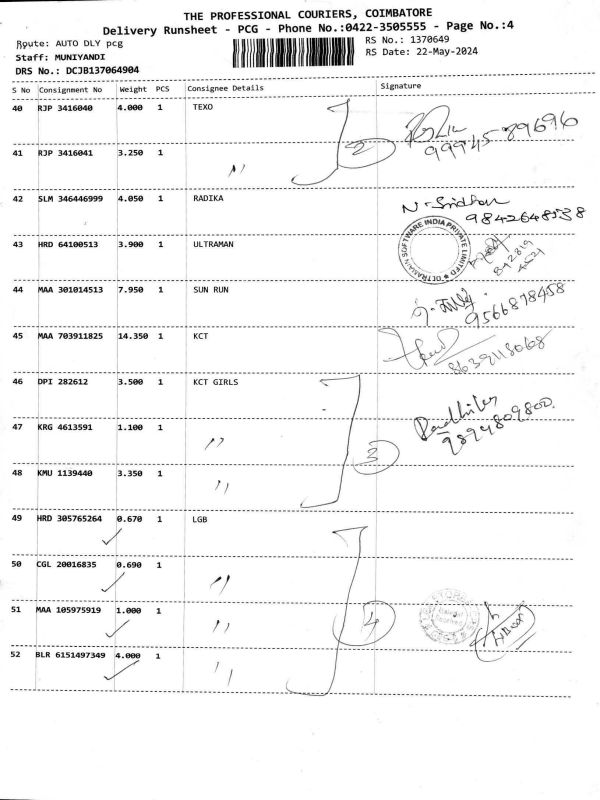 THE PROFESSIONAL COURIERS, COIMBATORE
Delivery Runsheet - PCG - Phone No.:0422-3505555 - Page No.:4
Route: AUTO DLY pcg
RS No.: 1370649
Staff: MUNIYANDI
RS Date: 22-May-2024
DRS No.: DCJB137064904
S No Consignment No Weight PCS Consignee Details Signature
40 RJP 3416040 4.000 1 TEXO
99945 89696
41 RJP 3416041 3.250 1 〃 2
42 SLM 346446999 4.050 1 RADIKA N. Sridhar
9842648538
43 HRD 64100513 3.900 1 ULTRAMAN
SOFTWARE INDIA PRIVATE LIMITED
44 MAA 301014513 7.950 1 SUN RUN
9566878458
45 MAA 703911825 14.350 1 KCT
8639118068
46 DPI 282612 3.500 1 KCT GIRLS
47 KRG 4613591 1.100 1 〃 3
9894809800
48 KMU 1139440 3.350 1 〃
49 HRD 305765264 0.670 1 LGB
50 CGL 20016835 0.690 1 〃
51 MAA 105975919 1.000 1 〃 4
52 BLR 6151497349 4.000 1 〃